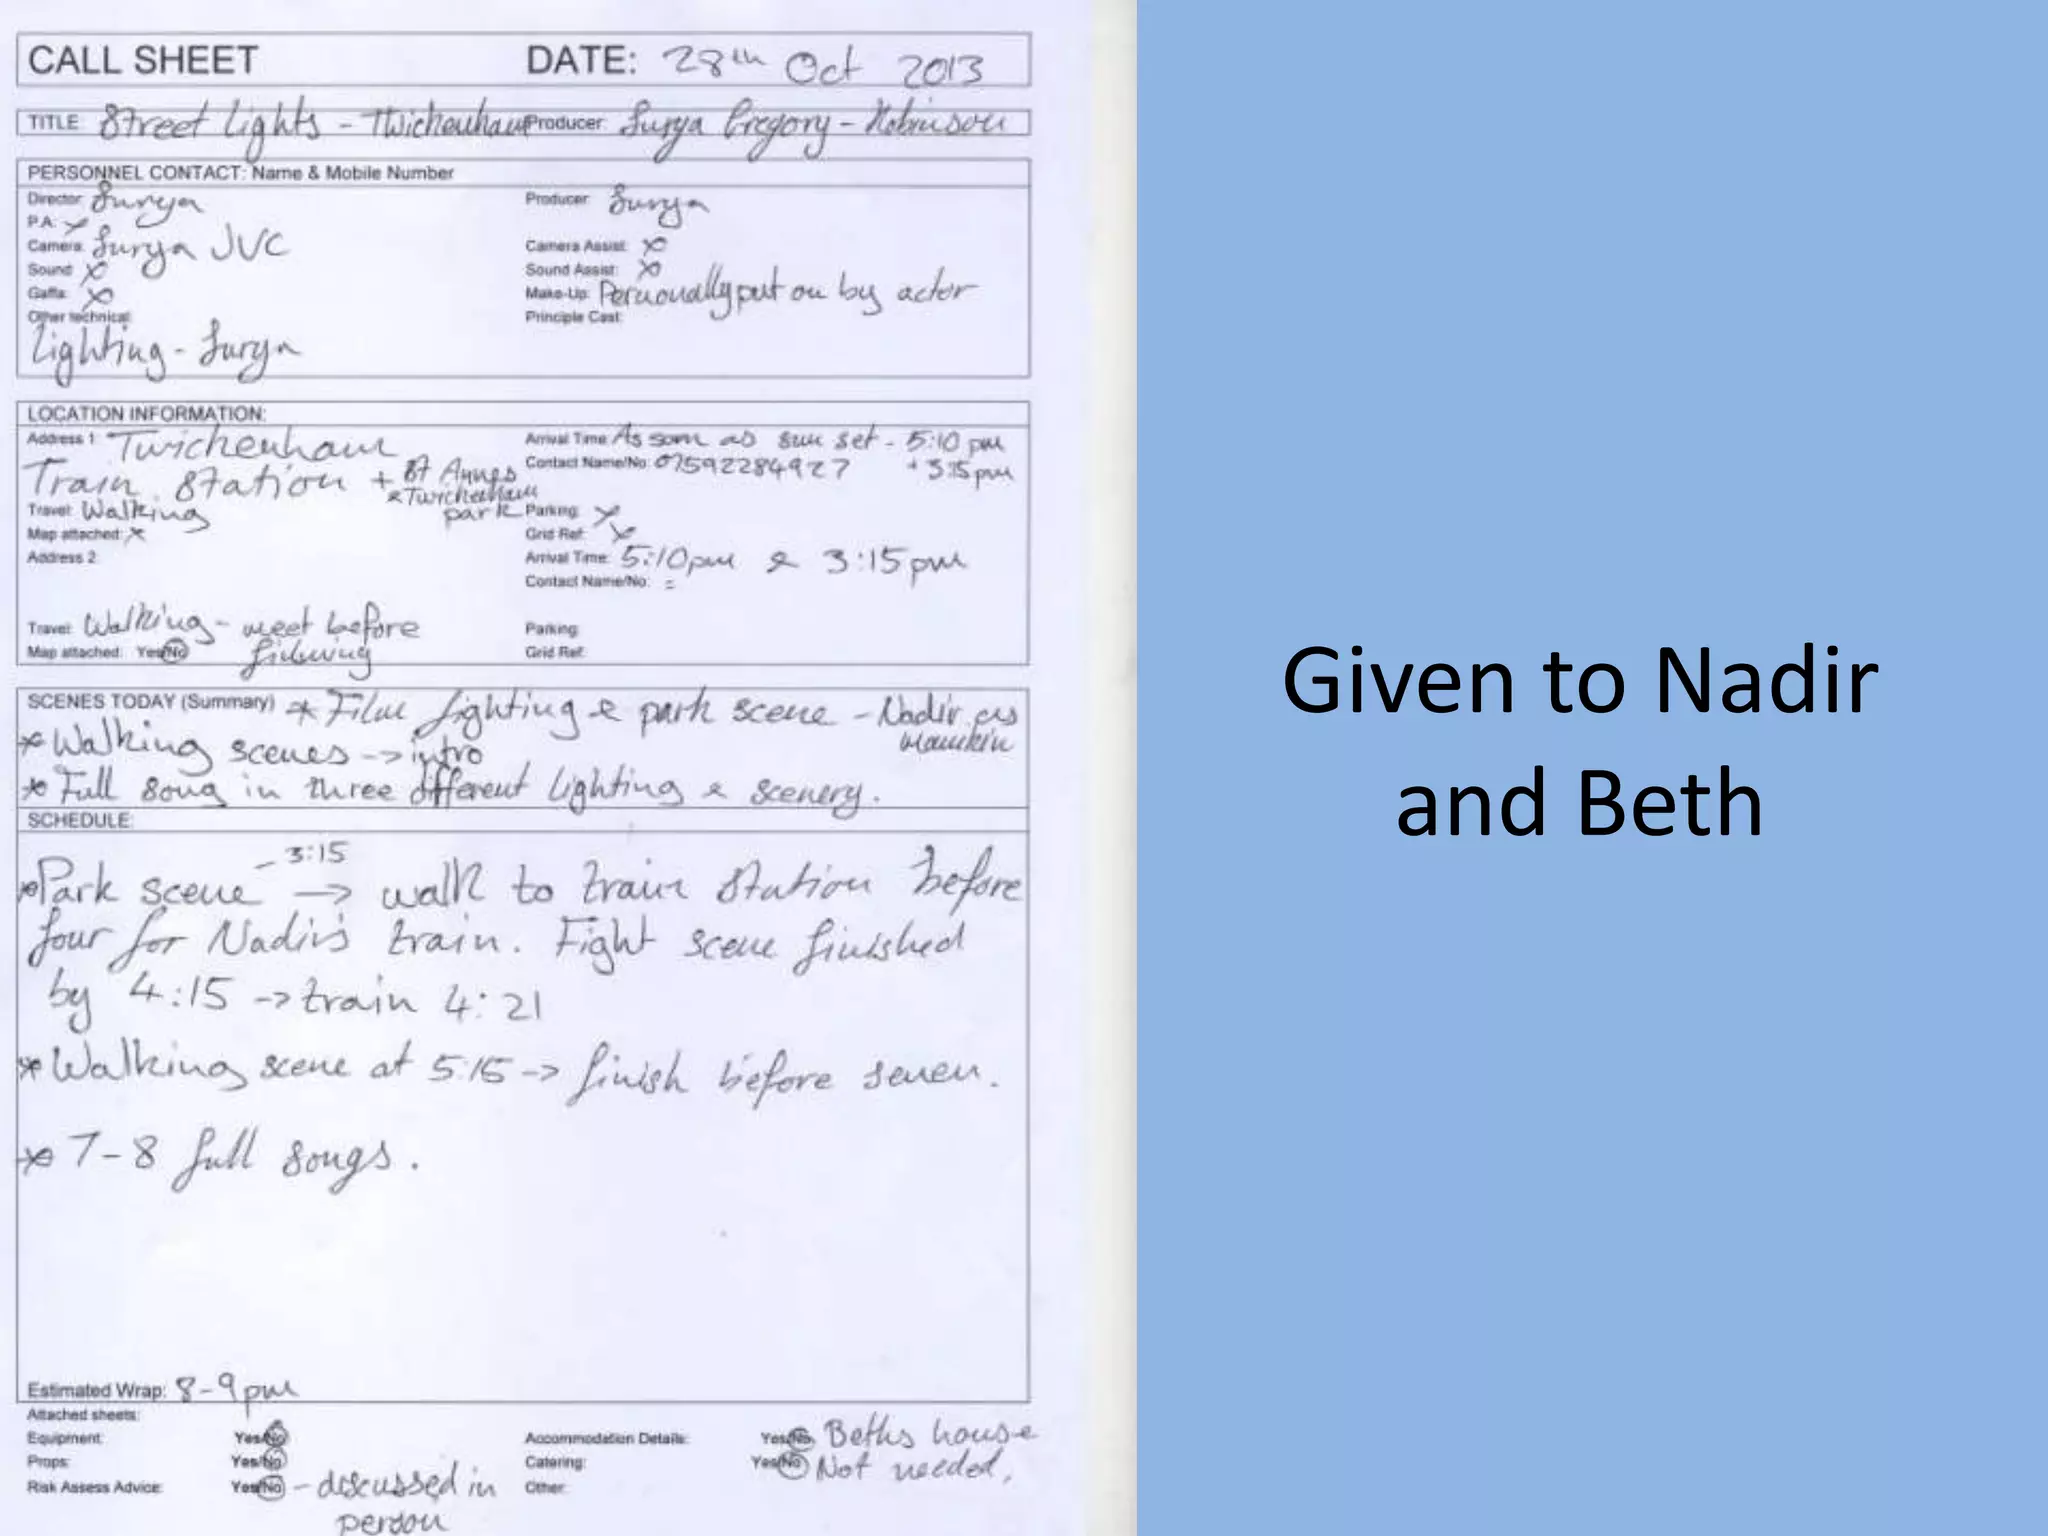 CALL SHEET DATE: 28th Oct 2013
TITLE: Street Lights - Twickenham Producer: Surya Gregory-Robinson
PERSONNEL CONTACT: Name & Mobile Number
Director: Surya Producer: Surya
P.A: x
Camera: Surya JVC Camera Assist: x
Sound: x Sound Assist: x
Gaffa: x Make-Up: Personally put on by actor
Other technical: Principle Cast:
Lighting - Surya
LOCATION INFORMATION:
Address 1: Twickenham Arrival Time: As soon as sun set - 5:10 pm
Train station + St Annes Contact Name/No: 07592284927 + 3:15pm
& Twickenham
Travel: Walking park Parking: x
Map attached: x Grid Ref: x
Address 2: Arrival Time: 5:10pm & 3:15pm
Contact Name/No: =
Travel: Walking - meet before Parking:
Map attached: Yes/No filming Grid Ref:
SCENES TODAY (Summary) * Film fighting & park scene - Nadir as
* Walking scenes -> intro
* Full song in three different lighting & scenery.
SCHEDULE:
- 3:15
* Park scene -> walk to train station before
four for Nadir's train. Fight scene finished
by 4:15 -> train 4:21
* Walking scene at 5:15 -> finish before seven.
* 7-8 full songs.
Estimated Wrap: 8-9pm
Attached sheets:
Equipment: Yes/No Accommodation Details: Yes/No Beths house
Props: Yes/No Catering: Yes/No Not needed.
Risk Assess Advice: Yes/No - discussed in Other:
person
Given to Nadir
and Beth